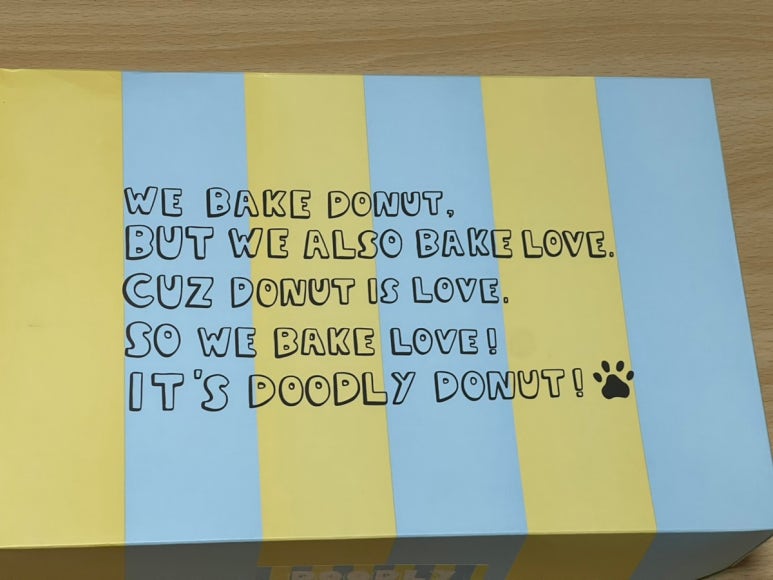 WE BAKE DONUT,
BUT WE ALSO BAKE LOVE.
CUZ DONUT IS LOVE.
SO WE BAKE LOVE!
IT'S DOODLY DONUT!
DOODLY